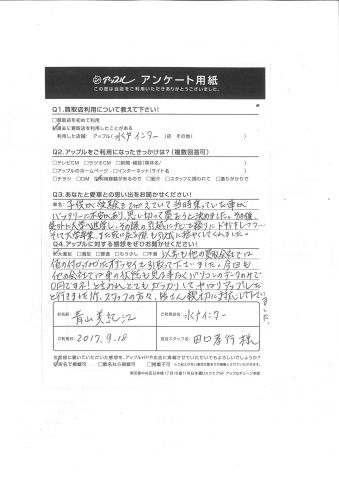 アップル アンケート用紙
この度は当店をご利用いただきありがとうございました。
Q1.買取店利用について教えて下さい!
□買取店を初めて利用
過去に買取店を利用したことがある
利用した店舗: アップル( 水戸インター )店 その他( )
Q2.アップルをご利用になったきっかけは?(複数回答可)
□テレビCM □ラジオCM □新聞・雑誌(媒体名/ )
□アップルのホームページ □インターネット(サイト名 )
□チラシ □DM 利用経験があるので □紹介 □スタッフに誘われて □通りがかりで
Q3.あなたと愛車との思い出をお聞かせください!
車名: 子供が受験をひかえていて当時乗っていた車が
バッテリーに不安があり、思い切って買おうと決めました。その後、
県外に大学へ進学し、その際の引越にも
そして大学卒業、また家に戻る際も引越に
Q4.アップルに対する感想をぜひお聞かせください!
大満足 □満足 □普通 □もう少し □不満 以前も他の買取会社では
値の付かなかったオデッセイを引取って下さいました。今回も
他の会社では車の状態も見る事なくパソコンのデータのみで
0円ですネ!と言われとてもがっかりして、やはりアップルしだと
行きましたが、スタッフの方々、皆さん親切に対応して下さいました。
お名前: 青山美紀江
ご利用店名: 水戸インター
ご利用日: 2017.9.18
担当スタッフ名: 田口孝行 様
お客様に書いていただいた感想を、アップルHPやお店に掲載させていただいてもよろしいでしょうか?
実名で掲載可 □匿名なら掲載可 □不可